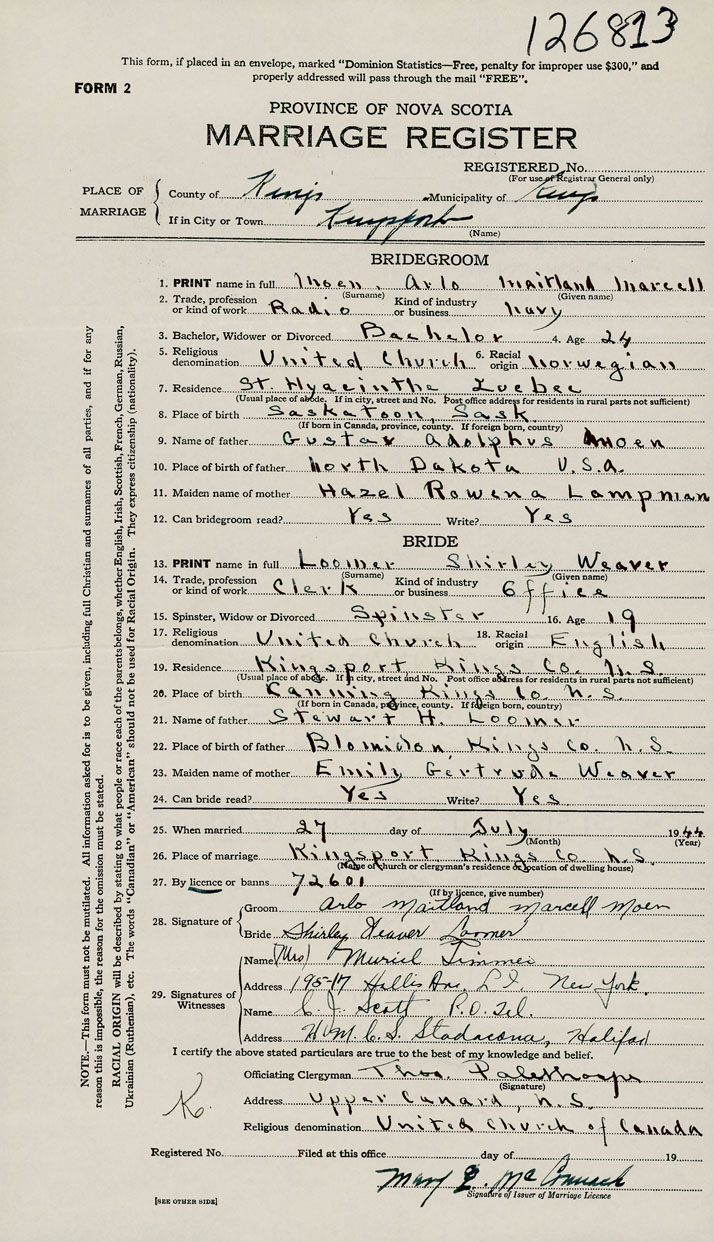 126813
This form, if placed in an envelope, marked "Dominion Statistics—Free, penalty for improper use $300," and
properly addressed will pass through the mail "FREE".
FORM 2
PROVINCE OF NOVA SCOTIA
MARRIAGE REGISTER
REGISTERED No.
(For use of Registrar General only)
PLACE OF MARRIAGE
County of Kings Municipality of Kings
If in City or Town Kingsport
(Name)
BRIDEGROOM
1. PRINT name in full Moen, Arlo Maitland Marcell
(Surname) (Given name)
2. Trade, profession or kind of work Radio Kind of industry or business Navy
3. Bachelor, Widower or Divorced Bachelor 4. Age 24
5. Religious denomination United Church 6. Racial origin Norwegian
7. Residence St. Hyacinthe Quebec
(Usual place of abode. If in city, street and No. Post office address for residents in rural parts not sufficient)
8. Place of birth Saskatoon, Sask
(If born in Canada, province, county. If foreign born, country)
9. Name of father Gustav Adolphus Moen
10. Place of birth of father North Dakota U.S.A.
11. Maiden name of mother Hazel Rowena Lampman
12. Can bridegroom read? Yes Write? Yes
BRIDE
13. PRINT name in full Loomer Shirley Weaver
(Surname) (Given name)
14. Trade, profession or kind of work Clerk Kind of industry or business Office
15. Spinster, Widow or Divorced Spinster 16. Age 19
17. Religious denomination United Church 18. Racial origin English
19. Residence Kingsport Kings Co. N.S.
(Usual place of abode. If in city, street and No. Post office address for residents in rural parts not sufficient)
20. Place of birth Canning Kings Co. N.S.
(If born in Canada, province, county. If foreign born, country)
21. Name of father Stewart H. Loomer
22. Place of birth of father Blomidon, Kings Co. N.S.
23. Maiden name of mother Emily Gertrude Weaver
24. Can bride read? Yes Write? Yes
25. When married 27 day of July 1944
(Month) (Year)
26. Place of marriage Kingsport Kings Co N.S.
(Name of church or clergyman's residence or location of dwelling house)
27. By licence or banns 72601
(If by licence, give number)
28. Signature of
Groom Arlo Maitland Marcell Moen
Bride Shirley Weaver Loomer
29. Signatures of Witnesses
Name (Mrs) Muriel
Address 195-17 Hollis Ave, L.I. New York.
Name C. J. Scott P.O. Tel.
Address H.M.C.S. Stadacona, Halifax
I certify the above stated particulars are true to the best of my knowledge and belief.
Officiating Clergyman Thos. Palethorpe
(Signature)
Address Upper Canard, N.S.
Religious denomination United Church of Canada
K.
Registered No. Filed at this office day of 19
Mary McCormack
Signature of Issuer of Marriage Licence
[SEE OTHER SIDE]
NOTE.—This form must not be mutilated. All information asked for is to be given, including full Christian and surnames of all parties, and if for any
reason this is impossible, the reason for the omission must be stated.
RACIAL ORIGIN will be described by stating to what people or race each of the parents belongs, whether English, Irish, Scottish, French, German, Russian,
Ukrainian (Ruthenian), etc. The words "Canadian" or "American" should not be used for Racial Origin. They express citizenship (nationality).